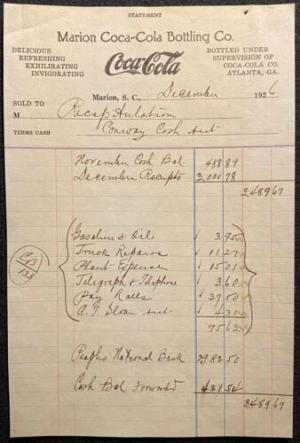 STATEMENT
Marion Coca-Cola Bottling Co.
DELICIOUS
REFRESHING
EXHILIRATING
INVIGORATING
Coca-Cola
BOTTLED UNDER
SUPERVISION OF
COCA-COLA CO.
ATLANTA, GA.
Marion, S. C., December 1926
SOLD TO
M Recapitulation
TERMS CASH Conway Cash Act
November Cash Bal. 488 89
December Receipts 2,000 78
2489 67
Gasoline & Oils 3 95
Truck Repairs 11 27
Plant Expense 15 01
Telegraph & Telephone 3 60
Pay Rolls 37 50
Act 4 30
75 63
Peoples National Bank 1982 50
Cash Bal. Forward 431 54
2489 67